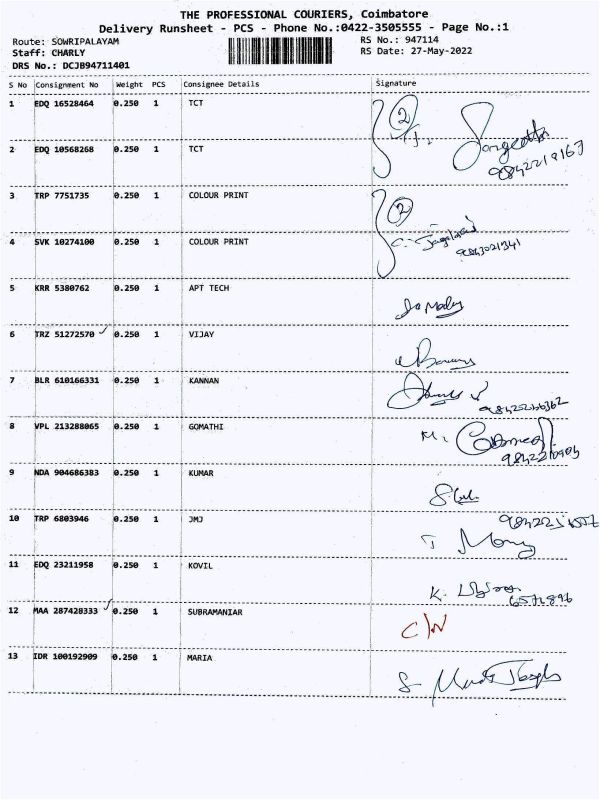 THE PROFESSIONAL COURIERS, Coimbatore
Delivery Runsheet - PCS - Phone No.:0422-3505555 - Page No.:1
Route: SOWRIPALAYAM RS No.: 947114
Staff: CHARLY RS Date: 27-May-2022
DRS No.: DCJB94711401
S No Consignment No Weight PCS Consignee Details Signature
1 EDQ 16528464 0.250 1 TCT 2
2 EDQ 10568268 0.250 1 TCT
9842219167
3 TRP 7751735 0.250 1 COLOUR PRINT 2
4 SVK 10274100 0.250 1 COLOUR PRINT
9843021341
5 KRR 5380762 0.250 1 APT TECH
6 TRZ 51272570 0.250 1 VIJAY
7 BLR 610166331 0.250 1 KANNAN
8 VPL 213288065 0.250 1 GOMATHI M.
9842210909
9 NDA 904686383 0.250 1 KUMAR
10 TRP 6803946 0.250 1 JMJ
T Mony
11 EDQ 23211958 0.250 1 KOVIL
K.
6571896
12 MAA 287428333 0.250 1 SUBRAMANIAR
C/N
13 IDR 100192909 0.250 1 MARIA
S